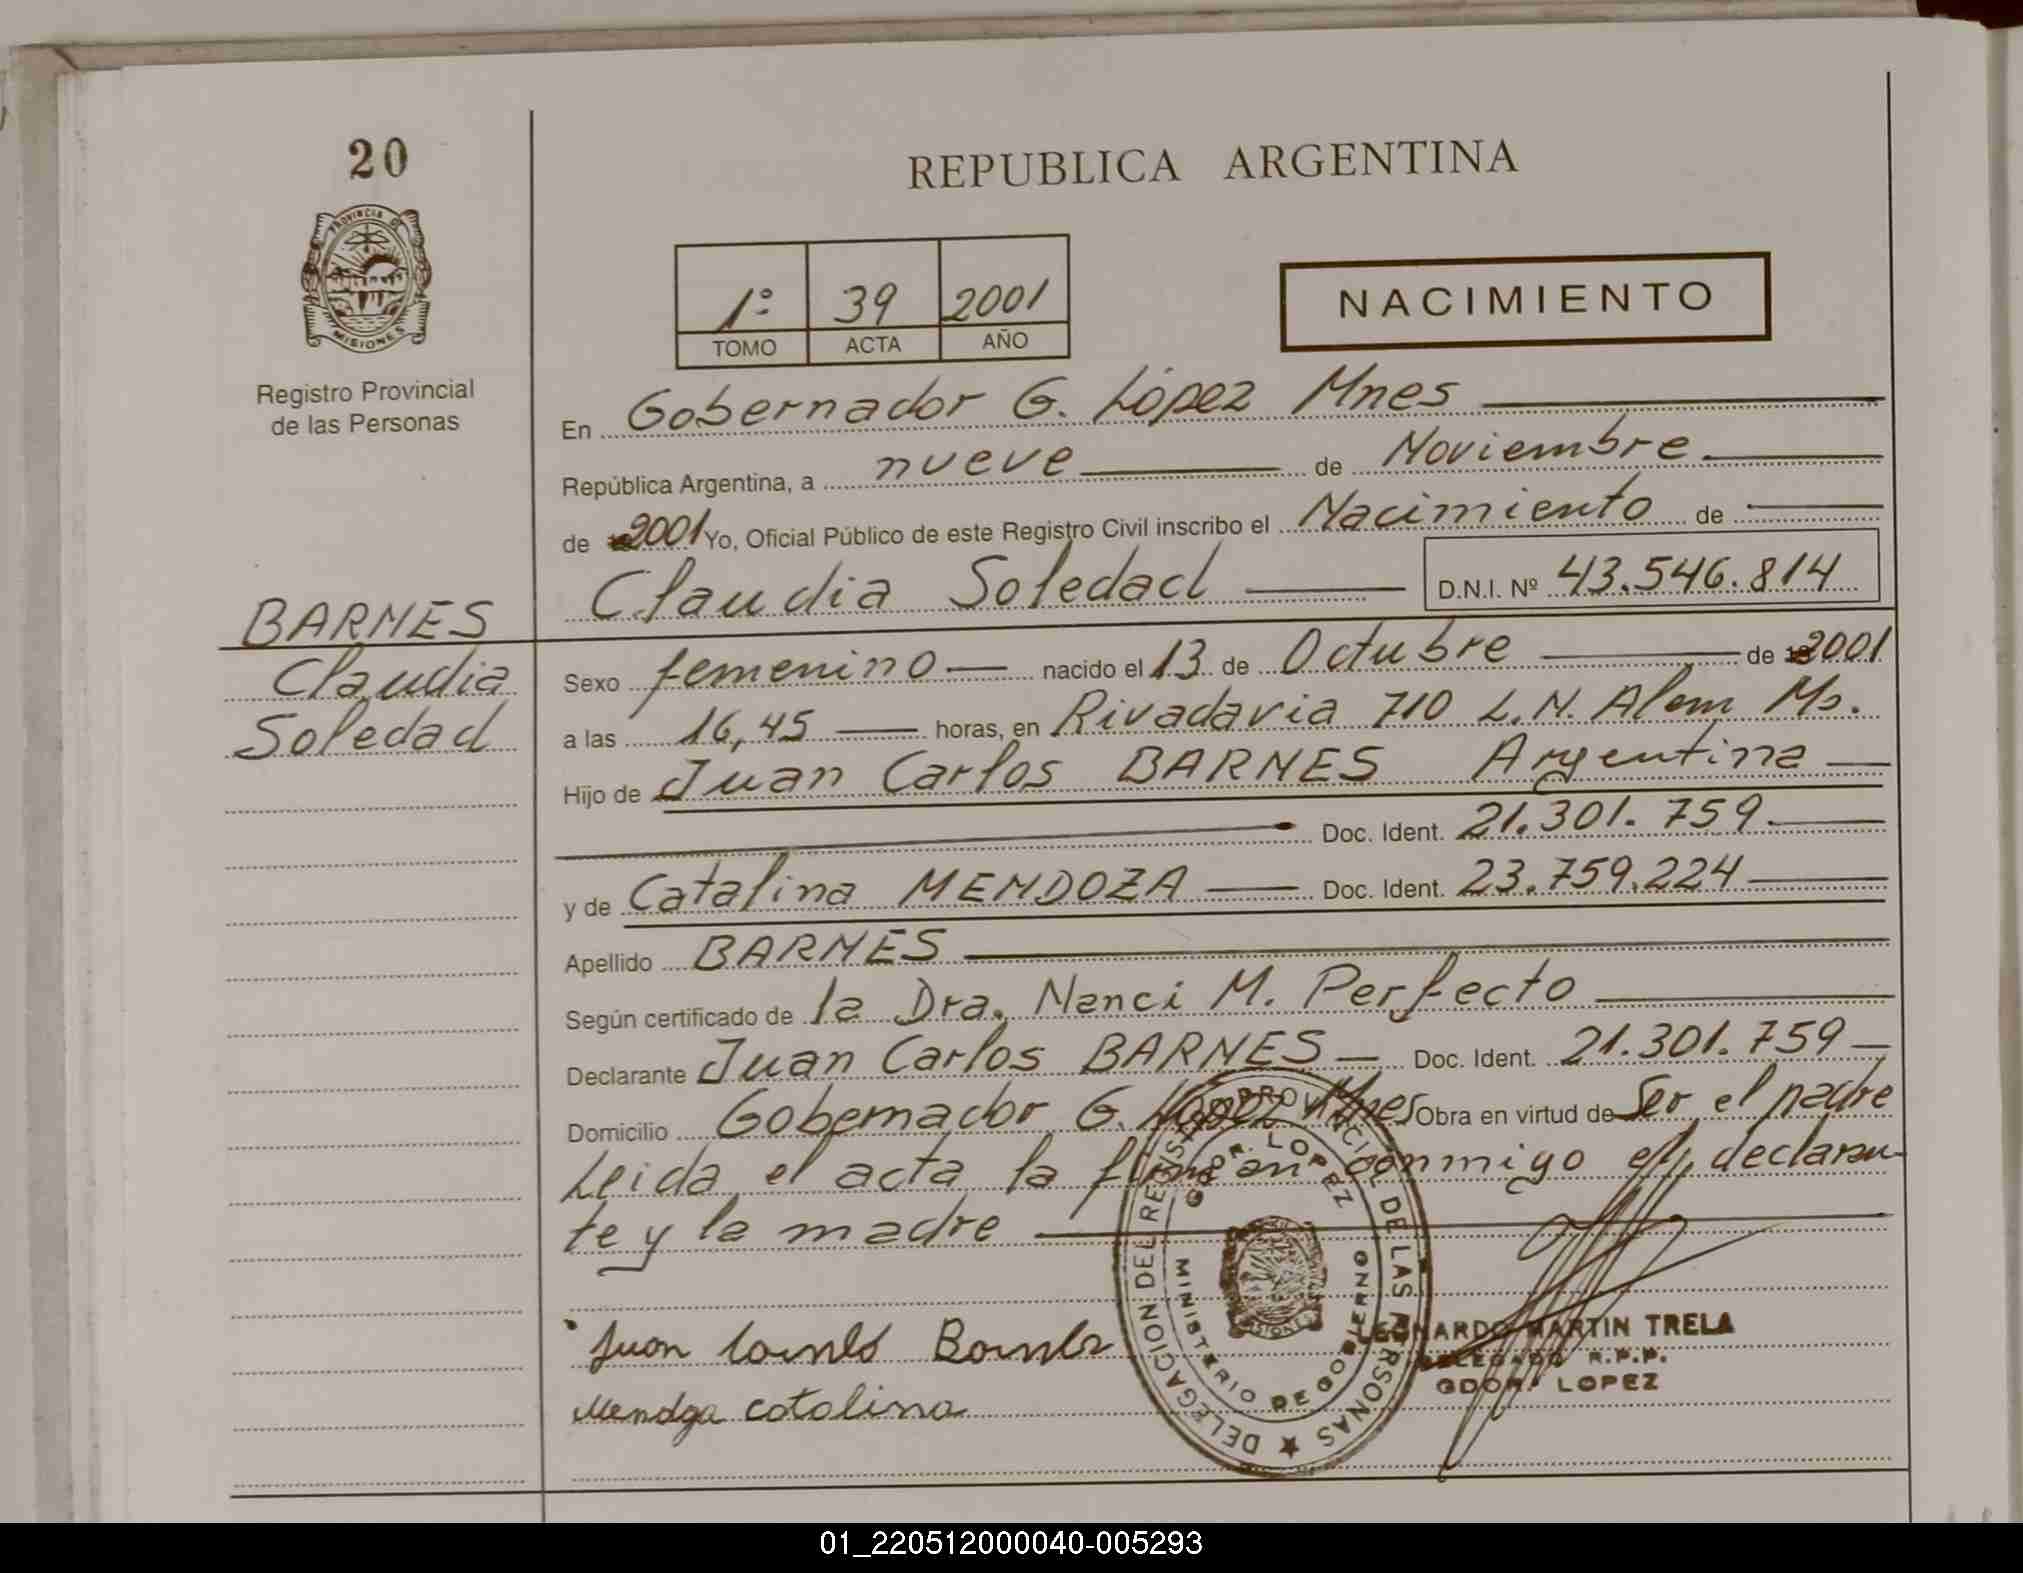 20
REPUBLICA ARGENTINA
PROVINCIA D MISIONES
Registro Provincial
de las Personas
1º 39 2001
TOMO ACTA AÑO
NACIMIENTO
En Gobernador G. López Mnes
República Argentina, a nueve de Noviembre
de 2001 Yo, Oficial Público de este Registro Civil inscribo el Nacimiento de
Claudia Soledad D.N.I. Nº 43.546.814
BARNES
Claudia
Soledad
Sexo femenino nacido el 13 de Octubre de 2001
a las 16,45 horas, en Rivadavia 710 L.N. Alem Ms.
Hijo de Juan Carlos BARNES Argentina
Doc. Ident. 21.301.759
y de Catalina MENDOZA Doc. Ident. 23.759.224
Apellido BARNES
Según certificado de la Dra. Nanci M. Perfecto
Declarante Juan Carlos BARNES Doc. Ident. 21.301.759
Domicilio Gobernador G. López Mnes Obra en virtud de Ser el padre
Leida el acta la firman conmigo el declaran-
te y la madre
DELEGACION DEL REGISTRO PROVINCIAL DE LAS PERSONAS
GDOR. LOPEZ
MINISTERIO DE GOBIERNO
Juan Carlos Barnes
Mendoza catalina
LEONARDO MARTIN TRELA
DELEGADO R.P.P.
GDOR. LOPEZ
01_220512000040-005293